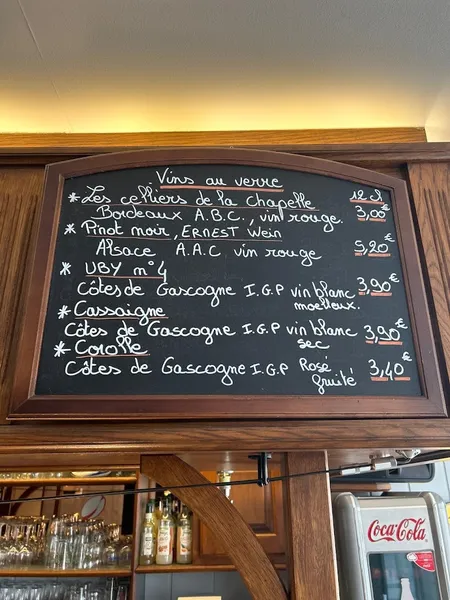 Vins au verre
* Les celliers de la chapelle 12 cl
Bordeaux A.B.C., vin rouge. 3,00€
* Pinot noir, ERNEST Wein
Alsace A.A.C vin rouge 5,20€
* UBY n°4
Côtes de Gascogne I.G.P vin blanc 3,90€
moelleux.
* Cassaigne
Côtes de Gascogne I.G.P vin blanc 3,90€
sec
* Corolle
Côtes de Gascogne I.G.P Rosé 3,40€
fruité
Coca-Cola